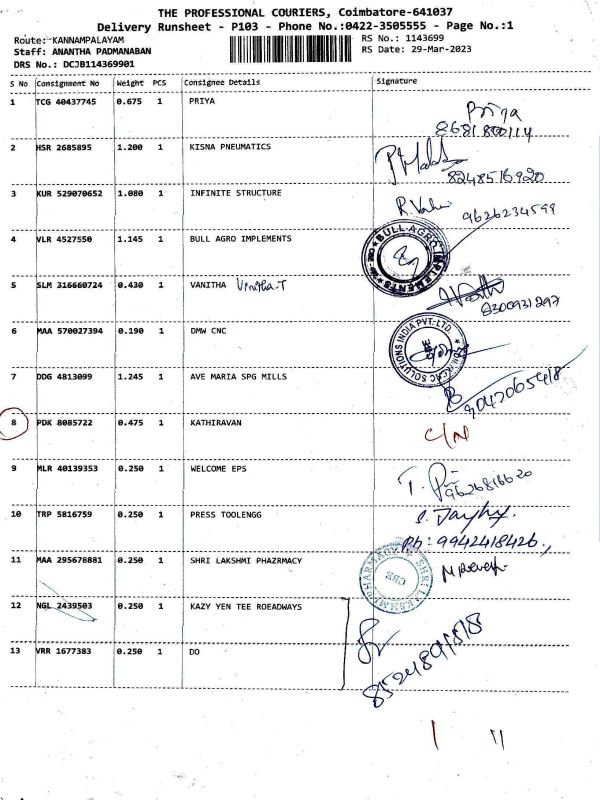 THE PROFESSIONAL COURIERS, Coimbatore-641037
Delivery Runsheet - P103 - Phone No.:0422-3505555 - Page No.:1
Route: KANNAMPALAYAM RS No.: 1143699
Staff: ANANTHA PADMANABAN RS Date: 29-Mar-2023
DRS No.: DCJB114369901
S No Consignment No Weight PCS Consignee Details Signature
1 TCG 40437745 0.675 1 PRIYA Priya
2 HSR 2685895 1.200 1 KISNA PNEUMATICS
8248516920
3 KUR 529070652 1.080 1 INFINITE STRUCTURE
9626234599
4 VLR 4527550 1.145 1 BULL AGRO IMPLEMENTS BULL AGRO IMPLEMENTS
5 SLM 316660724 0.430 1 VANITHA Vinitha.T
8300931297
6 MAA 570027394 0.190 1 DMW CNC DMW CNC SOLUTIONS INDIA PVT. LTD.
7 DDG 4813099 1.245 1 AVE MARIA SPG MILLS
9047065418
8 PDK 8085722 0.475 1 KATHIRAVAN C/N
9 MLR 40139353 0.250 1 WELCOME EPS
9626816620
10 TRP 5816759 0.250 1 PRESS TOOLENGG
Ph: 9942418426
11 MAA 295678881 0.250 1 SHRI LAKSHMI PHAZRMACY SHRI LAKSHMI PHARMACY CBE
12 NGL 2439503 0.250 1 KAZY YEN TEE ROEADWAYS
13 VRR 1677383 0.250 1 DO